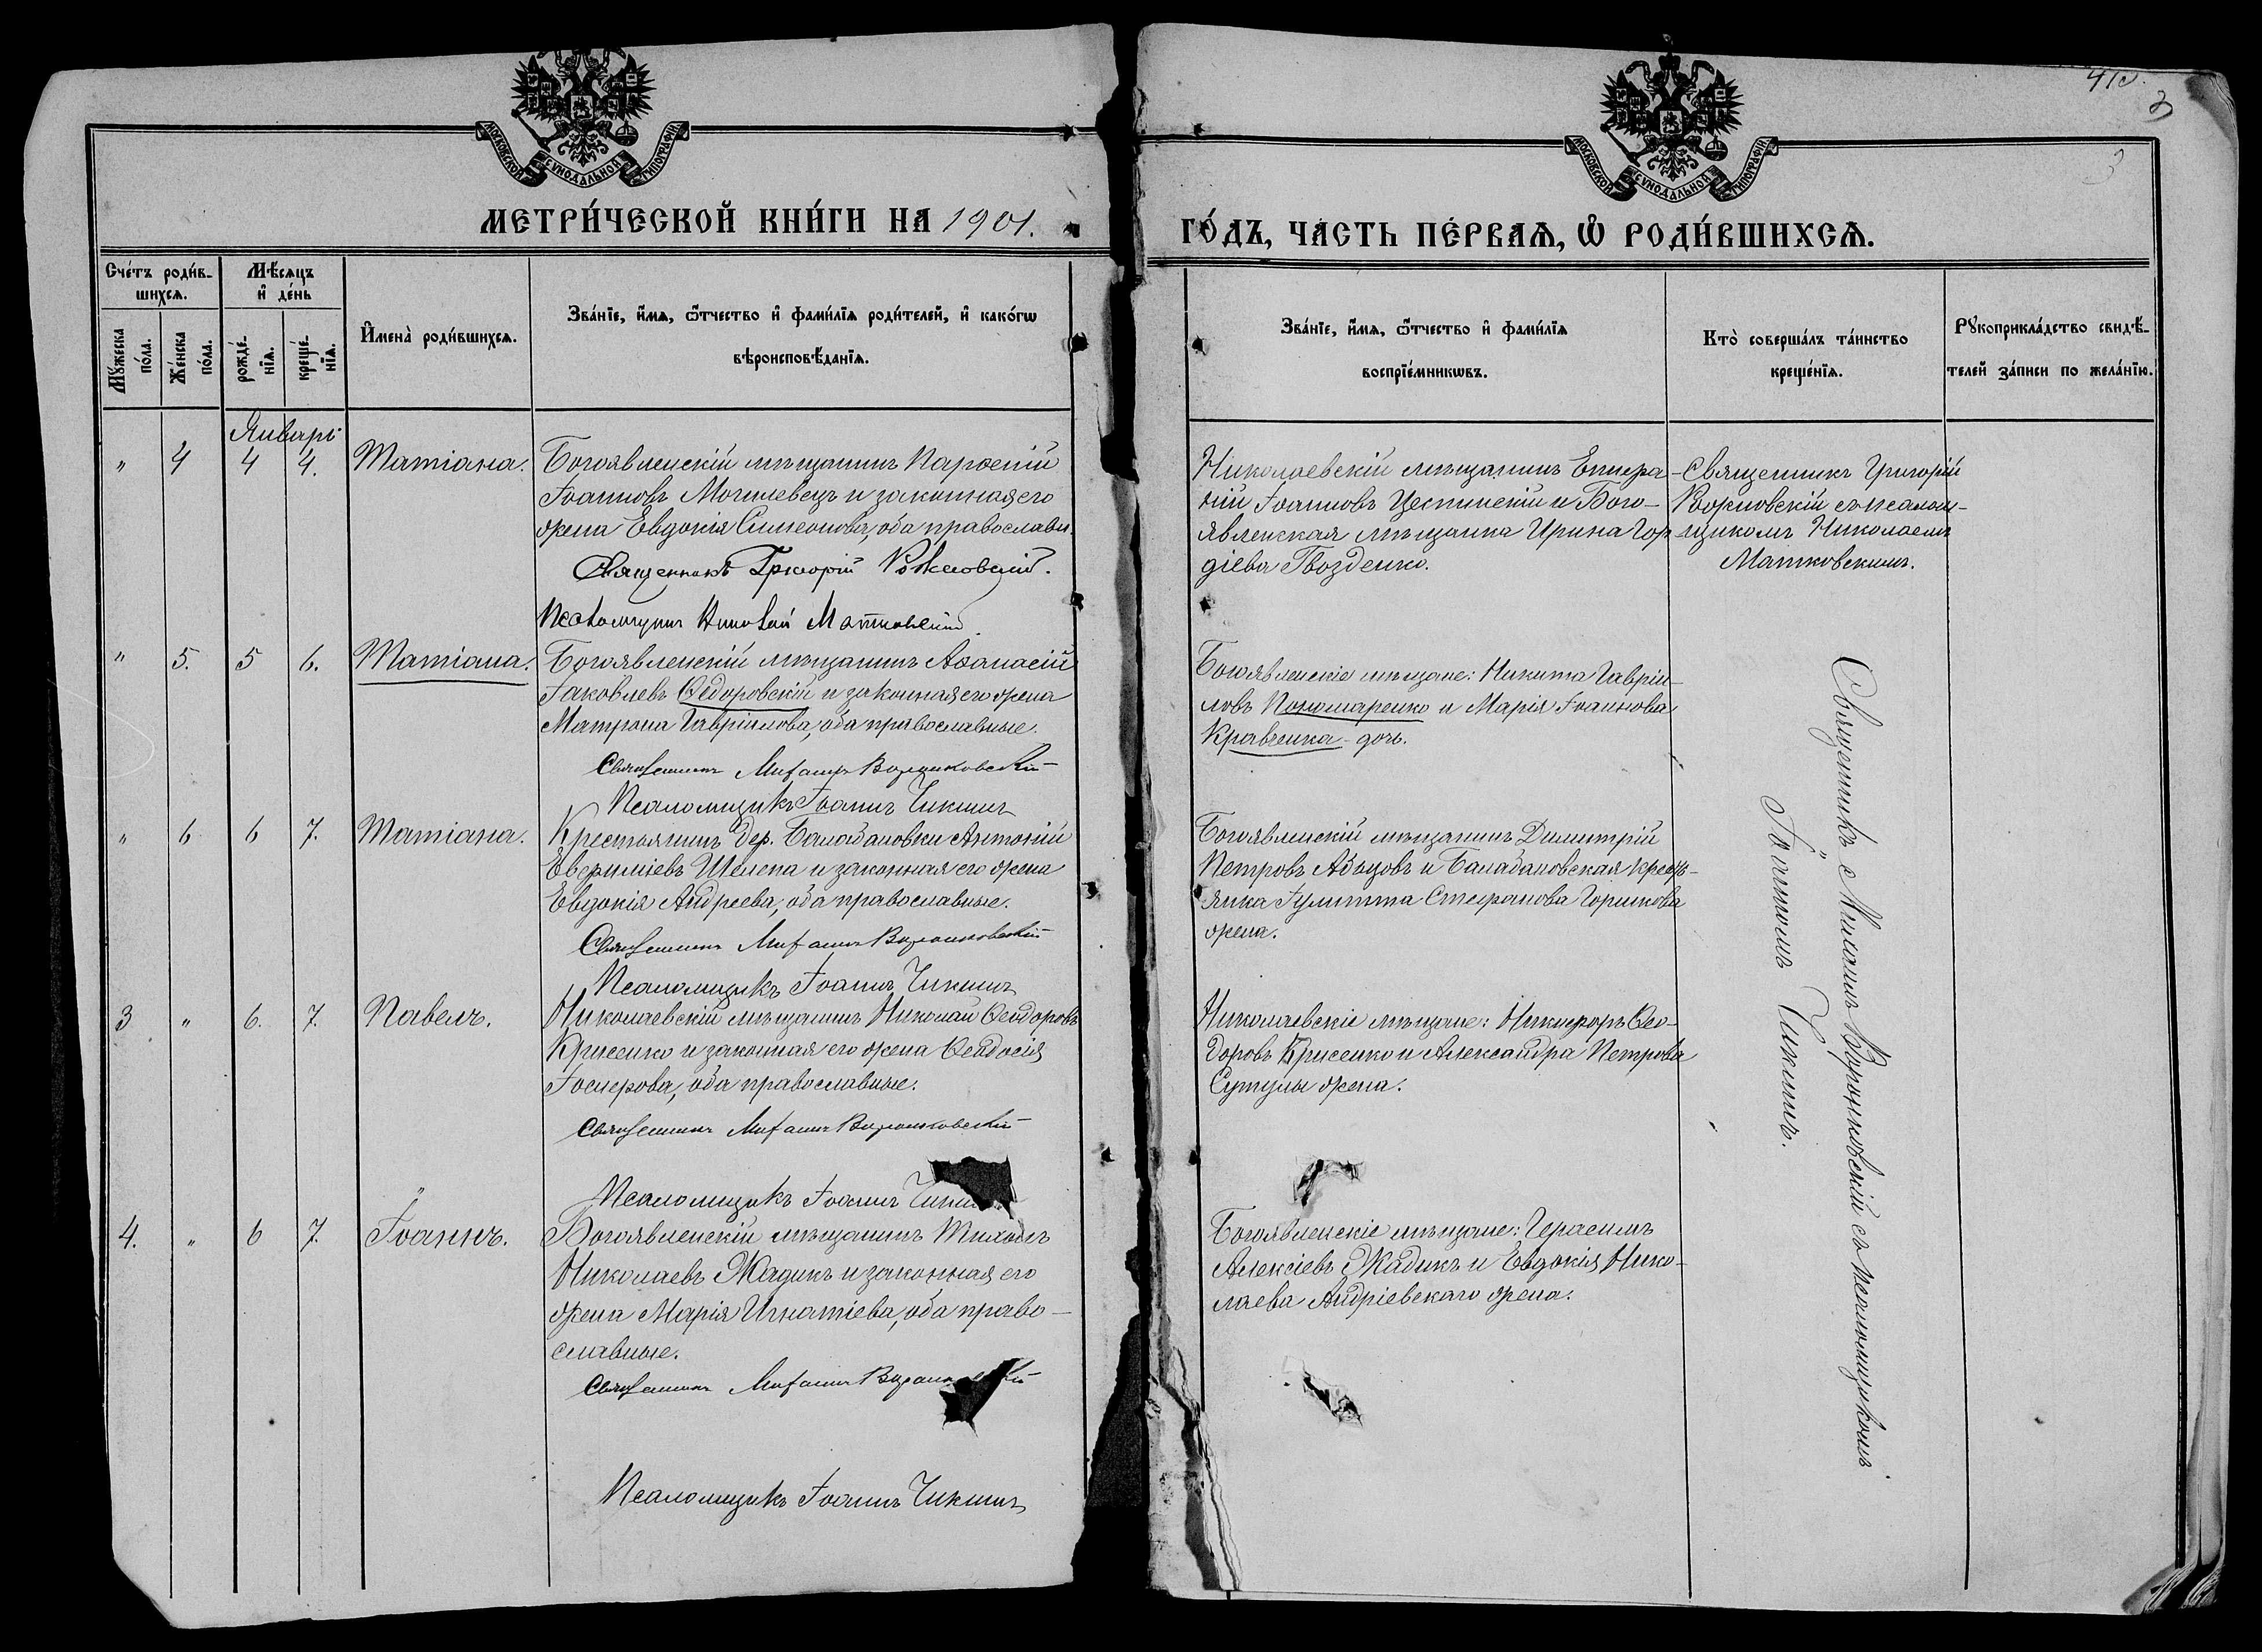 41об.
3
3
МОСКОВСКОЙ СѴНОДАЛЬНОЙ ТИПОГРАФІИ
МОСКОВСКОЙ СѴНОДАЛЬНОЙ ТИПОГРАФІИ
МЕТРИ́ЧЕСКОЙ КНИ́ГИ НА 1901.
ГО́ДЪ, ЧА́СТЬ ПЕ́РВАѦ, Ѡ РОДИ́ВШИХСѦ.
Сче́тъ роди́в-
шихсѧ.
Мꙋ́жеска по́ла.
Же́нска по́ла.
Мѣ́сѧцъ
и҆ де́нь
рожде́-
нїѧ.
креще́-
нїѧ.
И҆мена̀ роди́вшихсѧ.
Зва́нїе, и҆́мѧ, ѻ҆́тчество и҆ фами́лїѧ роди́телей, и҆ како́гѡ
вѣроисповѣ́данїѧ.
Зва́нїе, и҆́мѧ, ѻ҆́тчество и҆ фами́лїѧ
воспрїе́мникѡвъ.
Кто̀ соверша́лъ та́инство
креще́нїѧ.
Рꙋкоприкла́дство свидѣ́-
телей за́писи по жела́нїю.
Январь
" 4 4 4. Татіана.
Богоявленскій мѣщанинъ Парѳеній
Іоанновъ Могилевецъ и законная его
жена Евдокія Симеонова, оба православн.
Священникъ Григорій Рожновскій.
Псаломщикъ Николай Матковскій
Николаевскій мѣщанинъ Епифа-
ній Іоанновъ Цеслинскій и Бого-
явленская мѣщанка Ирина Гор-
діева Гвозденко.
Священникъ Григорій
Рожновскій съ псалом-
щикомъ Николаемъ
Матковскимъ.
" 5. 5 6. Татіана.
Богоявленскій мѣщанинъ Аѳанасій
Іаковлевъ Ѳедоровскій и законная его жена
Матрона Гавріилова, оба православные.
Священникъ Михаилъ Воронковскій
Псаломщикъ Іоаннъ Чикинъ
Богоявленскіе мѣщане: Никита Гавріи-
ловъ Пономаренко и Марія Іоаннова
Кравченка дочь.
" 6 6 7. Татіана.
Крестьянинъ дер. Балабановки Антоній
Евфиміевъ Шелепа и законная его жена
Евдокія Андреева, оба православные.
Священникъ Михаилъ Воронковскій
Псаломщикъ Іоаннъ Чикинъ
Богоявленскій мѣщанинъ Димитрій
Петровъ Абызовъ и Балабановская кресть-
янка Іулитта Стефанова Горшкова
жена.
3 " 6. 7. Павелъ.
Николаевскій мѣщанинъ Николай Ѳеодоровъ
Крисенко и законная его жена Ѳеодосія
Іосифова, оба православные.
Священникъ Михаилъ Воронковскій
Псаломщикъ Іоаннъ
Николаевскіе мѣщане: Никифоръ Ѳео-
доровъ Крисенко и Александра Петрова
Сутулы жена.
4. " 6 7. Іоаннъ.
Богоявленскій мѣщанинъ Тихонъ
Николаевъ Жадикъ и законная его
жена Марія Игнатіева, оба право-
славные.
Священникъ Михаилъ
Псаломщикъ Іоаннъ Чикинъ
Богоявленскіе мѣщане: Герасимъ
Алексіевъ Жадикъ и Евдокія Нико-
лаева Андріевскаго жена.
Священникъ Михаилъ Воронковскій съ псаломщикомъ
Іоанномъ Чикинымъ.